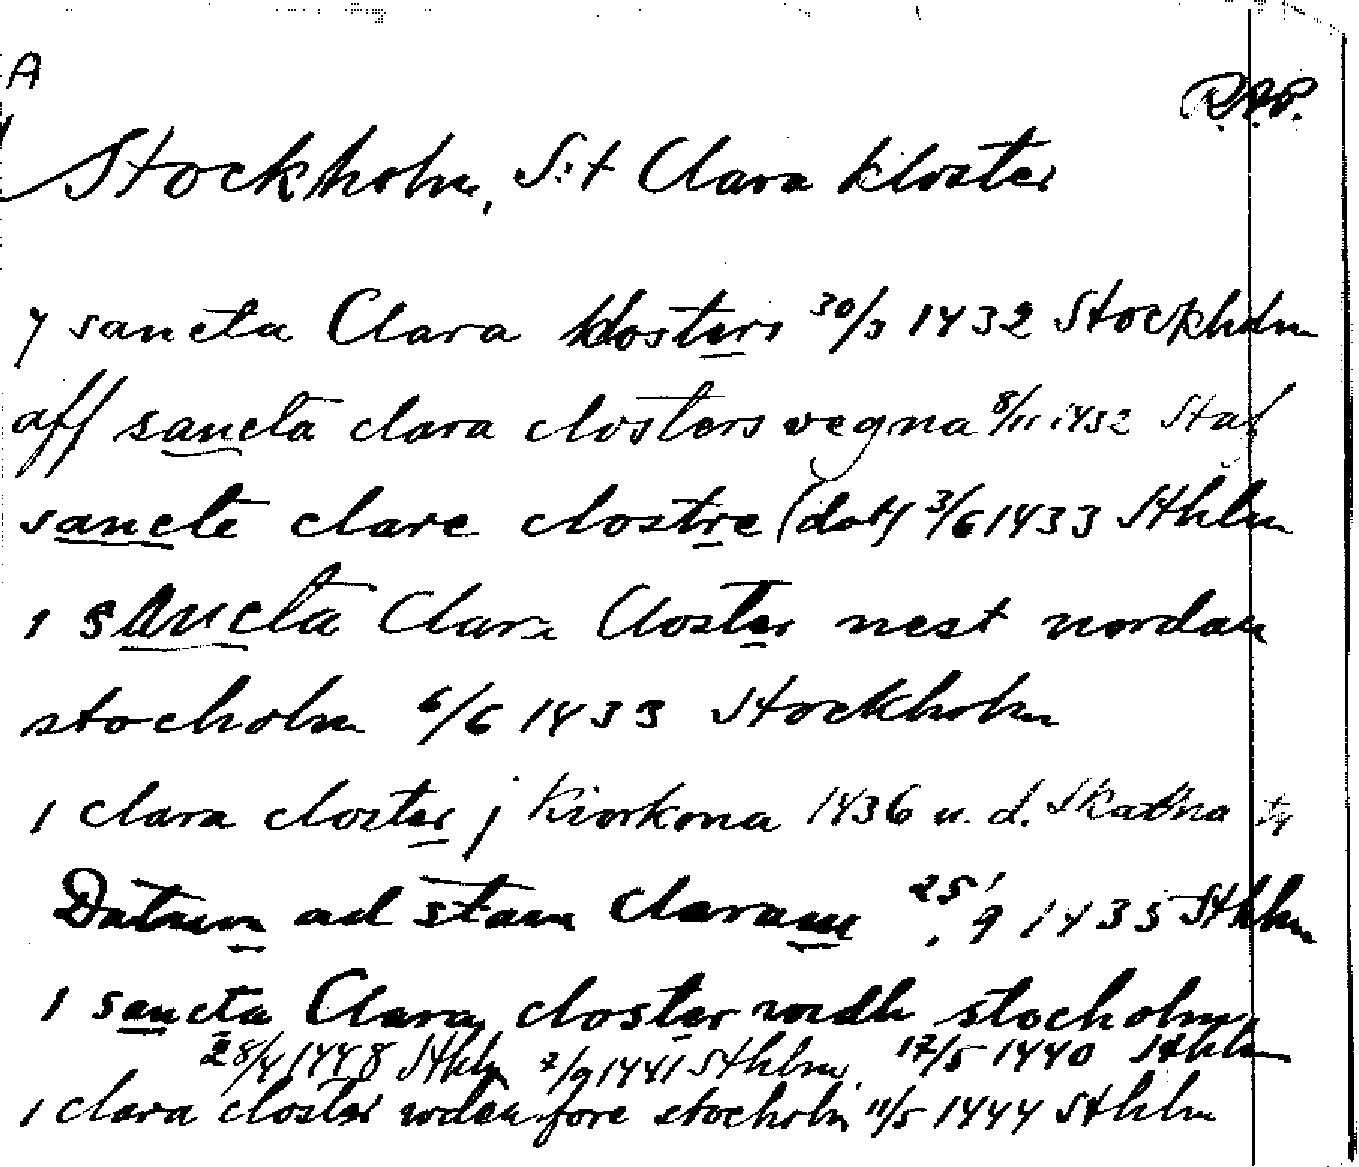 A
R.A.P.
Stockholm, S:t Clara kloster
y sancta Clara klosters 30/3 1432 Stockholm
aff sancta clara closters vegna 8/11 1432
sancte clare clostre (dat) 3/6 1433 Sthlm
i sancta Clara Closter nest nordan
stocholm 6/6 1433 Stockholm
i clara closter j Kiorkona 1436 u. d. Skattna
Datum ad stam Claram 25/9 1435 Sthlm
i sancta Clara closter widh stocholm
28/4 1448 Sthlm 2/9 1441 Sthlm. 17/5 1440 Sthlm
i clara closter wdan fore stocholm 11/5 1444 Sthlm